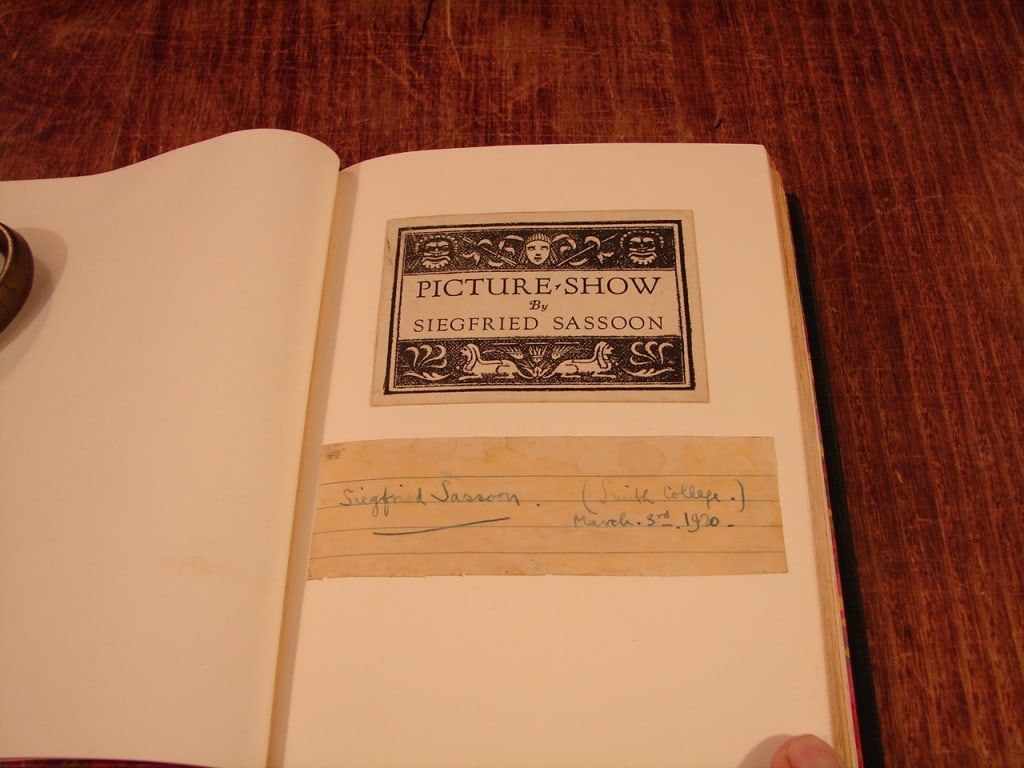 PICTURE-SHOW
By
SIEGFRIED SASSOON
Siegfried Sassoon. (Smith College.)
March. 3rd. 1920-